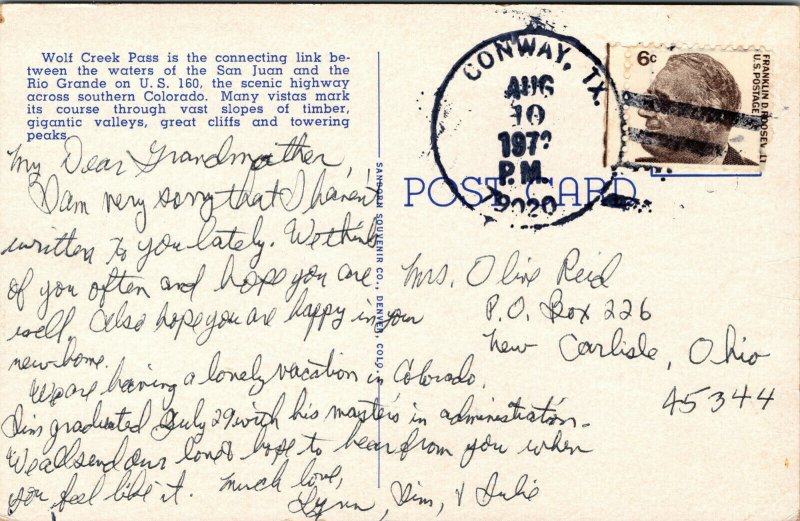 Wolf Creek Pass is the connecting link be-
tween the waters of the San Juan and the
Rio Grande on U.S. 160, the scenic highway
across southern Colorado. Many vistas mark
its course through vast slopes of timber,
gigantic valleys, great cliffs and towering
peaks.
My Dear Grandmother
I am very sorry that I haven't
written to you lately. We think
of you often and hope you are
well. Also hope you are happy in your
new home.
We are having a lovely vacation in Colorado.
Jim graduated July 29 with his master's in administration.
We all send our love & hope to hear from you when
you feel like it. Much love,
Lynn, Jim, & Julie
SANBORN SOUVENIR CO., DENVER, COLO.
CONWAY, TX.
AUG
10
197
P.M.
79020
6c
FRANKLIN D. ROOSEVELT
U.S. POSTAGE
POST CARD
Mrs. Olive Reid
P.O. Box 226
New Carlisle, Ohio
45344